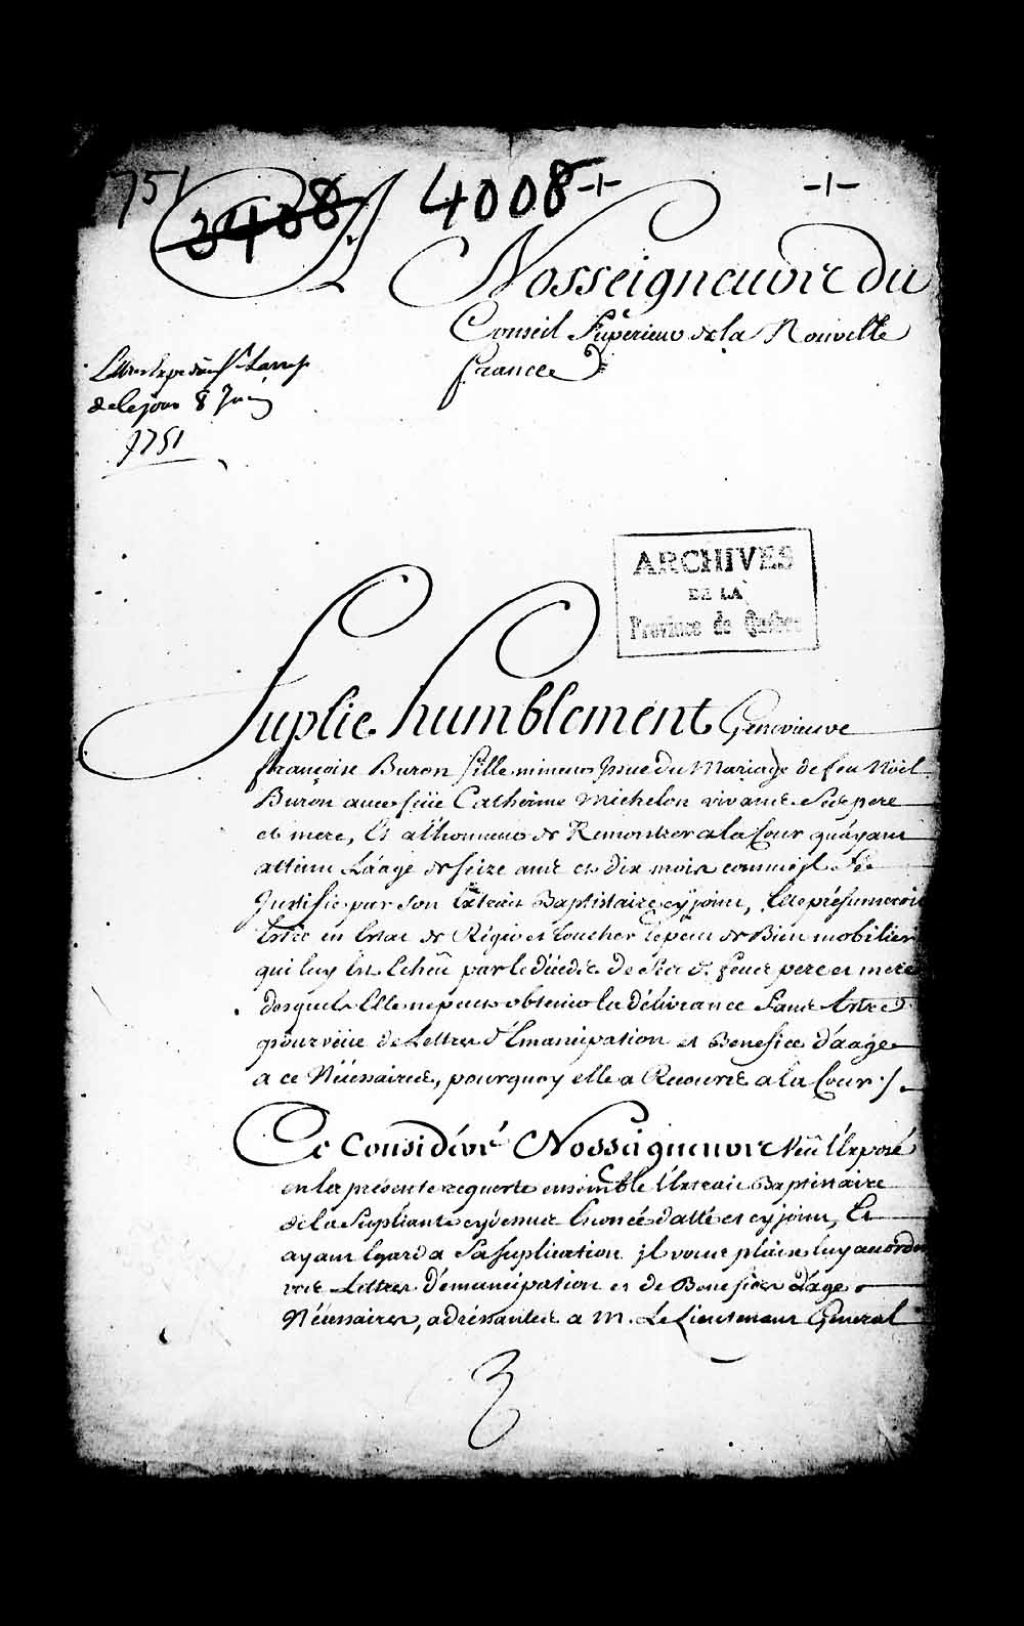 751
3438
4008 -1-
-1-
A Nosseigneurs du
Conseil Superieur de la Nouvelle
france
de ce jour 8 Juin
1751
ARCHIVES
DE LA
Province de Québec
Suplie humblement Genevieuve
françoise Buron fille mineure Issue du Mariage de feu Noël
Buron avec feüe Catherine Michelon vivants ses pere
et mere, Et a l'honneur de Remontrer a la Cour qu'ayant
atteint L'aage de seize ans et dix mois comme il
Justifie par son Extrait Baptistaire cy joint, Elle présumeroit
Estre en Estat de Régir et toucher le peu de Bien mobilier
qui luy Est Echeû par le décéds de ses d. feues pere et mere
desquels Elle ne peut obtenir la délivrance sans Estre
pourvüe de Lettres d'Emancipation et Benefice d'aage
a ce Nécessaires, pourquoy elle a Recours a la Cour ./.
Ce Considéré Nosseigneurs Veû l'Exposé
en la présente requeste ensemble l'Extrait Baptistaire
de la Supliante cy dessus Enoncé datté et cy joint, Et
ayant Egard a sa suplication il vous plaise luy accorder
vos Lettres d'émancipation et de Benefices d'age
Nécessaires, adréssantes a M. Le Lieutenant General